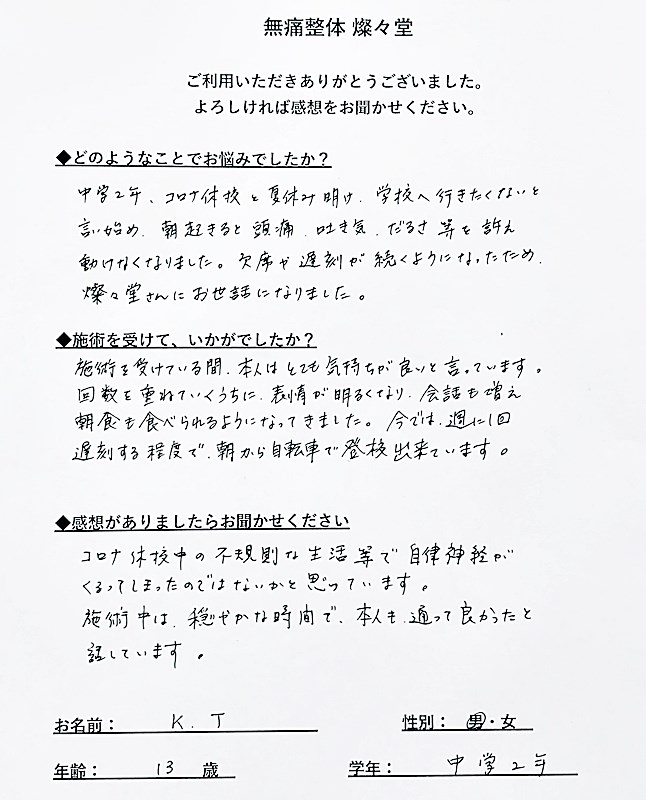 無痛整体 燦々堂
ご利用いただきありがとうございました。
よろしければ感想をお聞かせください。
◆どのようなことでお悩みでしたか?
中学2年、コロナ休校と夏休み明け、学校へ行きたくないと
言い始め、朝起きると頭痛、吐き気、だるさ等を訴え
動けなくなりました。欠席や遅刻が続くようになったため、
燦々堂さんにお世話になりました。
◆施術を受けて、いかがでしたか?
施術を受けている間、本人はとても気持ちが良いと言っています。
回数を重ねていくうちに、表情が明るくなり、会話も増え
朝食も食べられるようになってきました。今では、週に1回
遅刻する程度で、朝から自転車で登校出来ています。
◆感想がありましたらお聞かせください
コロナ休校中の不規則な生活等で自律神経が
くるってしまったのではないかと思っています。
施術中は、穏やかな時間で、本人も、通って良かったと
話しています。
お名前： K.T 性別： 男・女
年齢： 13 歳 学年： 中学2年